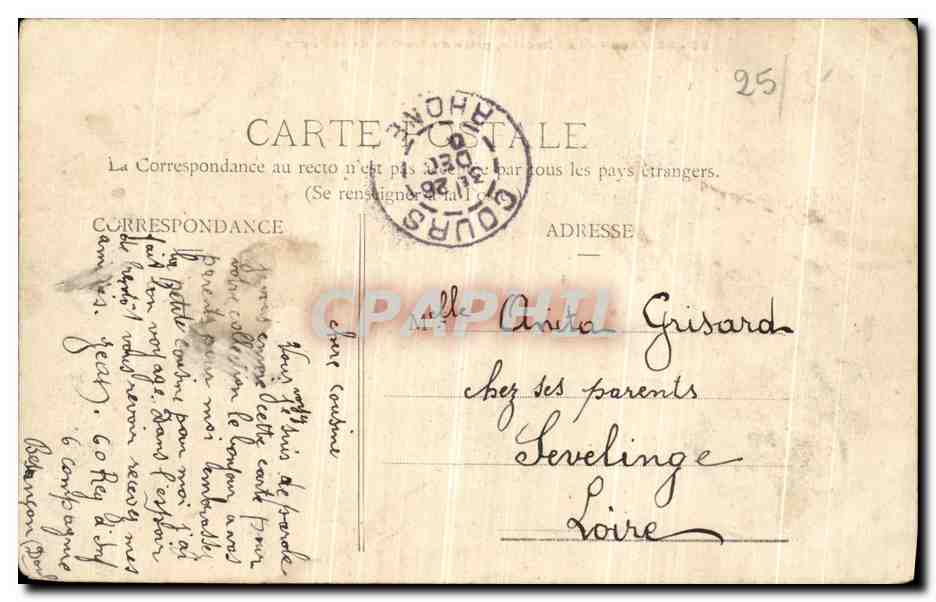 25
CARTE POSTALE
La Correspondance au recto n'est pas acceptée par tous les pays étrangers.
(Se renseigner à la Poste)
CORRESPONDANCE
ADRESSE
COURS
RHONE
26
DEC
CPAPHIL
Mlle Anita Grisard
chez ses parents
Sevelinge
Loire
chere cousine
Vous je suis de garde
je vous envoie cette carte pour
votre collection le bonjour a vos
parents pour moi embrasse
la petite cousine pour moi j'ai
fait bon voyage. Dans l'espoir
de bientôt vous revoir recevez mes
amitiés. Jean. 60 Reg d'inf
6 compagnie
Besançon (Doubs